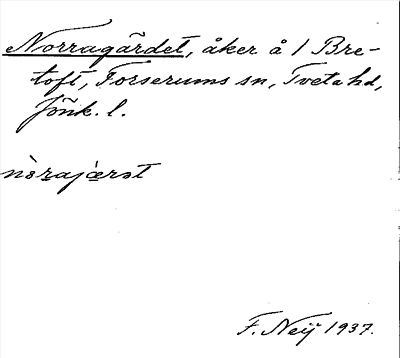 Norragärdet, åker å 1 Bre-
toft, Forserums sn, Tveta hd,
Jönk. l.
nòrajærət
F. Neij 1937.